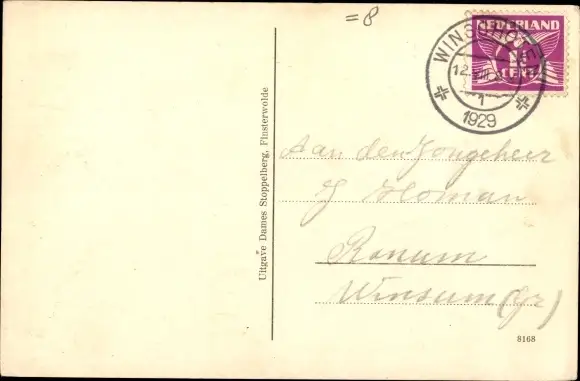 =8
NEDERLAND
1
CENT
WINSCHOTEN
12.
1
1929
Aan den Jongeheer
J Homan
Ranum
Winsum (Gr)
Uitgave Dames Stoppelberg, Finsterwolde
8168